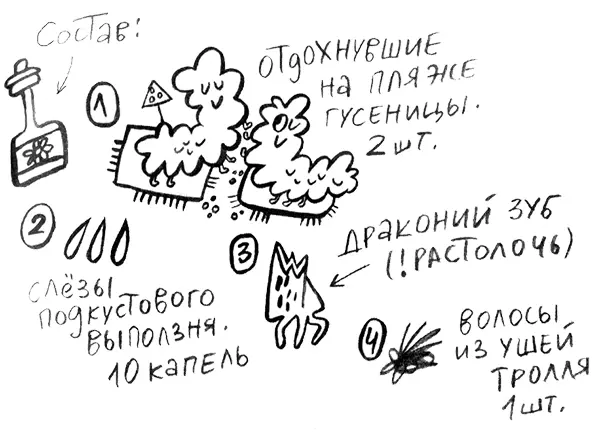 Состав:
1
отдохнувшие
на пляже
гусеницы.
2 шт.
2
слёзы
подкустового
выползня.
10 капель
3
драконий зуб
(! растолочь)
4
волосы
из ушей
тролля
1 шт.